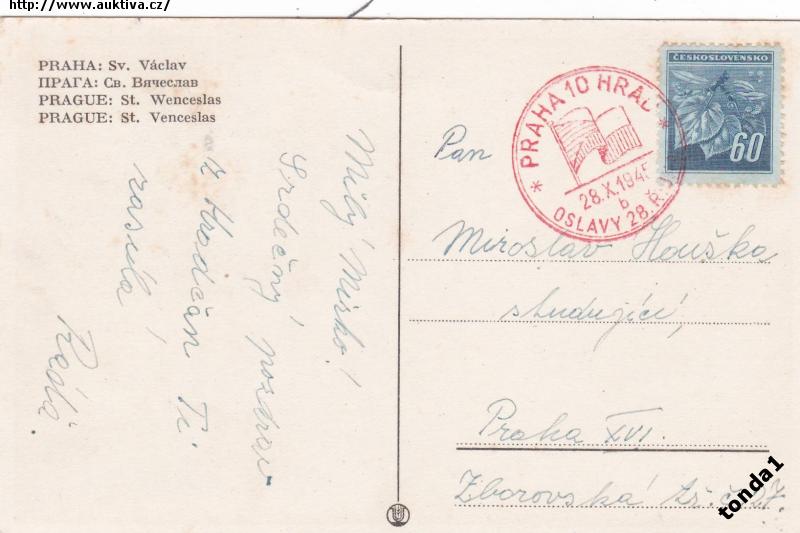 http://www.auktiva.cz/
PRAHA: Sv. Václav
ПРАГА: Св. Вячеслав
PRAGUE: St. Wenceslas
PRAGUE: St. Venceslas
Milý Mirko!
Srdečný pozdrav
z Hradčan Ti
zasílá
ČESKOSLOVENSKO
60
* PRAHA 10 HRAD *
28.X.1945
b
OSLAVY 28. ŘÍJ
Pan
Miroslav Houška
studující,
Praha XVI.
Zborovská
tonda1